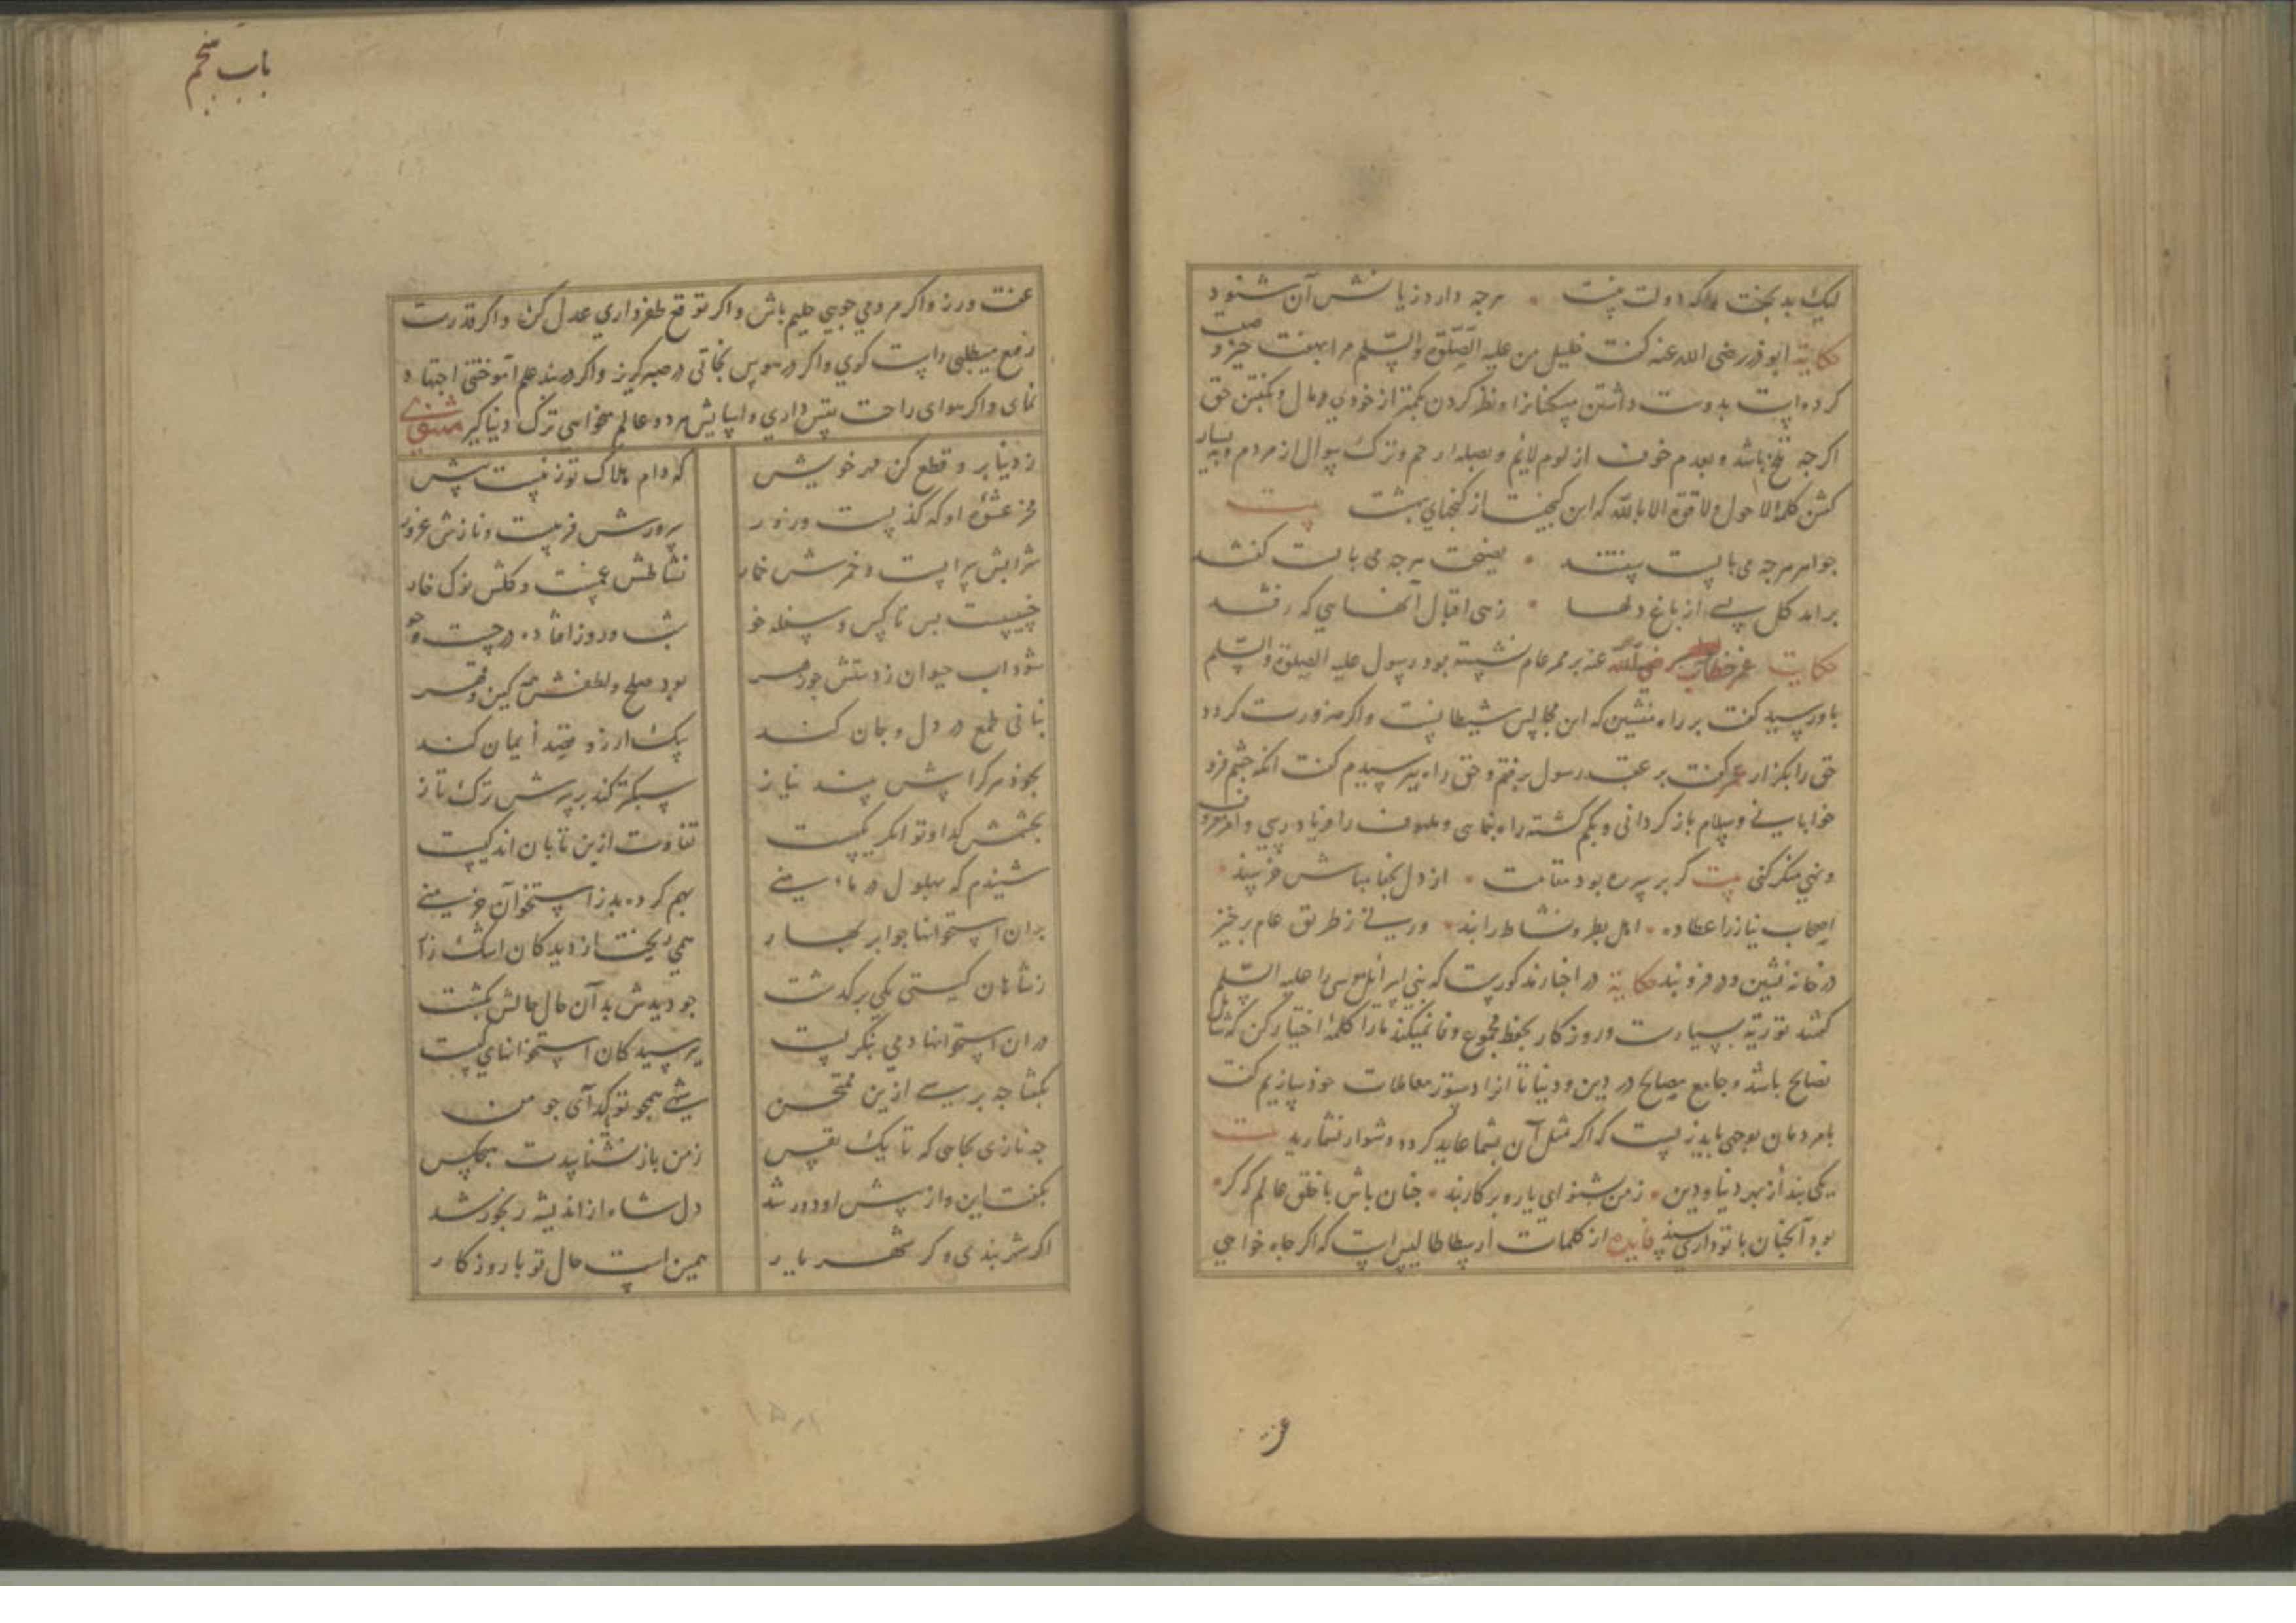 لیک بدبخت را که دولت نیست • هرچه دارد زیانش آن شنود
حکایة ابوذر رضی الله عنه گفت خلیل من علیه الصلوة والسلم مرا بهفت چیز وصیت
کرده است بدوست داشتن مسکینان و نظر کردن بکمتر از خودی در مال و بگفتن حق
اگرچه تلخ باشد و بعدم خوف از لوم لائم و بصله ارحم و ترک سوال از مردم و به بسیار
گفتن کلمه لا حول ولا قوة الا بالله که این گنجیست از گنجهای بهشت بیت
جو امر هرجه می بایست بینند • نصیحت هرجه می بایست کفتند
براید کل بسی از باغ دلها • زهی اقبال آنهایی که رفتند
حکایت عمر خطاب رضی الله عنه بر ممر عام نشسته بود رسول علیه الصلوة والسلم
باو رسید کفت بر راه منشین که این مجالس شیطانست واکر ضرورت کردد
حق را بگزار عمر کفت بر عقب رسول برفتم و حق راه پرسیدم کفت آنکه چشم فرو
خوابانی و سلام باز کردانی و کم کشته راه بنمایی و ملهوف را فریاد رسی و امر معروف
ونهی منکر کنی بیت کر بر سر ره بود مقامت • از دل بخدا مباش خرسند •
اصحاب نیاز را عطا ده • اهل بطر و نشاط را بند • ورنی ز طریق عام برخیز
در خانه نشین و در فرو بند حکایة در اخبار مذکورست که بنی اسرائیل موسی را علیه السلم
کفتند توریة بسیارست و روزکار بحفظ مجموع وفا نمیکند ما را کلمهٔ اختیار کن که شامل
نصایح باشد و جامع مصالح در دین و دنیا تا انرا دستور معاملات خود سازیم کفت
با مردمان بوجهی باید زیست که اکر مثل آن بشما عاید کردد دشوار نشمارید بیت
یکی پند از بهر دنیا و دین • ز من بشنو ای یار و بر کار بند • چنان باش با خلق عالم که کر •
بود آنچنان با تو داری پسند فایده از کلمات ارسطاطالیس است که اکر جاه خواهی
باب پنجم
عفت ورز واکر مردمی جویی حلیم باش واکر توقع ظفر داری عدل کن واکر قدرت
رفع میطلبی راست کوی واکر در هوس نجاتی در صبر کریز واکر در بند علم آموختنی اجتهاد
نمای واکر هوای راحت بیش داری واسایش هر دو عالم میخواهی ترک دنیا کیر مثنوی
ز دنیا بر و قطع کن مهر خویش که دام هلاک تو زنیست بیش
مخر عشوهٔ او که کذبست و زور سرورش فریبست و نازش غرور
شرابش سرابست و خمرش خمار نشاطش غمست و کلش نوک خار
خسیسست بس ناکس و سفله خو شب و روز افتاده در جست و جو
شود آب حیوان ز دستش چو زهر بود صلح و لطفش همه کین و قهر
بنانی طمع در دل و جان کند بیک ارزو قصد ایمان کند
بخود هرکرا بیش بیند نیاز سبکتر کند بر سرش ترک تاز
بچشمش کدا و توانکر یکیست تفاوت ازین تا بان اندکیست
شنیدم که بهلول در ماه منی بهم کرده بد ز استخوان خرمنی
بران استخوانها چو ابر بهار همی ریخت از دیدکان اشک زار
ز شاهان کیتی یکی برکذشت چو دیدش بدآن حال حالش بکشت
در آن استخوانها دمی بنکریست بپرسید کان استخوانهای کیست
بکفتا چه پرسی ازین ممتحن شهی همچو تو کدآیی چو من
چه نازی بجاهی که تا یک نفس ز من باز نشناسدت هیچکس
بکفت این و از پیش او دور شد دل شاه از اندیشه رنجور شد
اکر شهربندی و کر شهریار همین است حال تو با روزکار